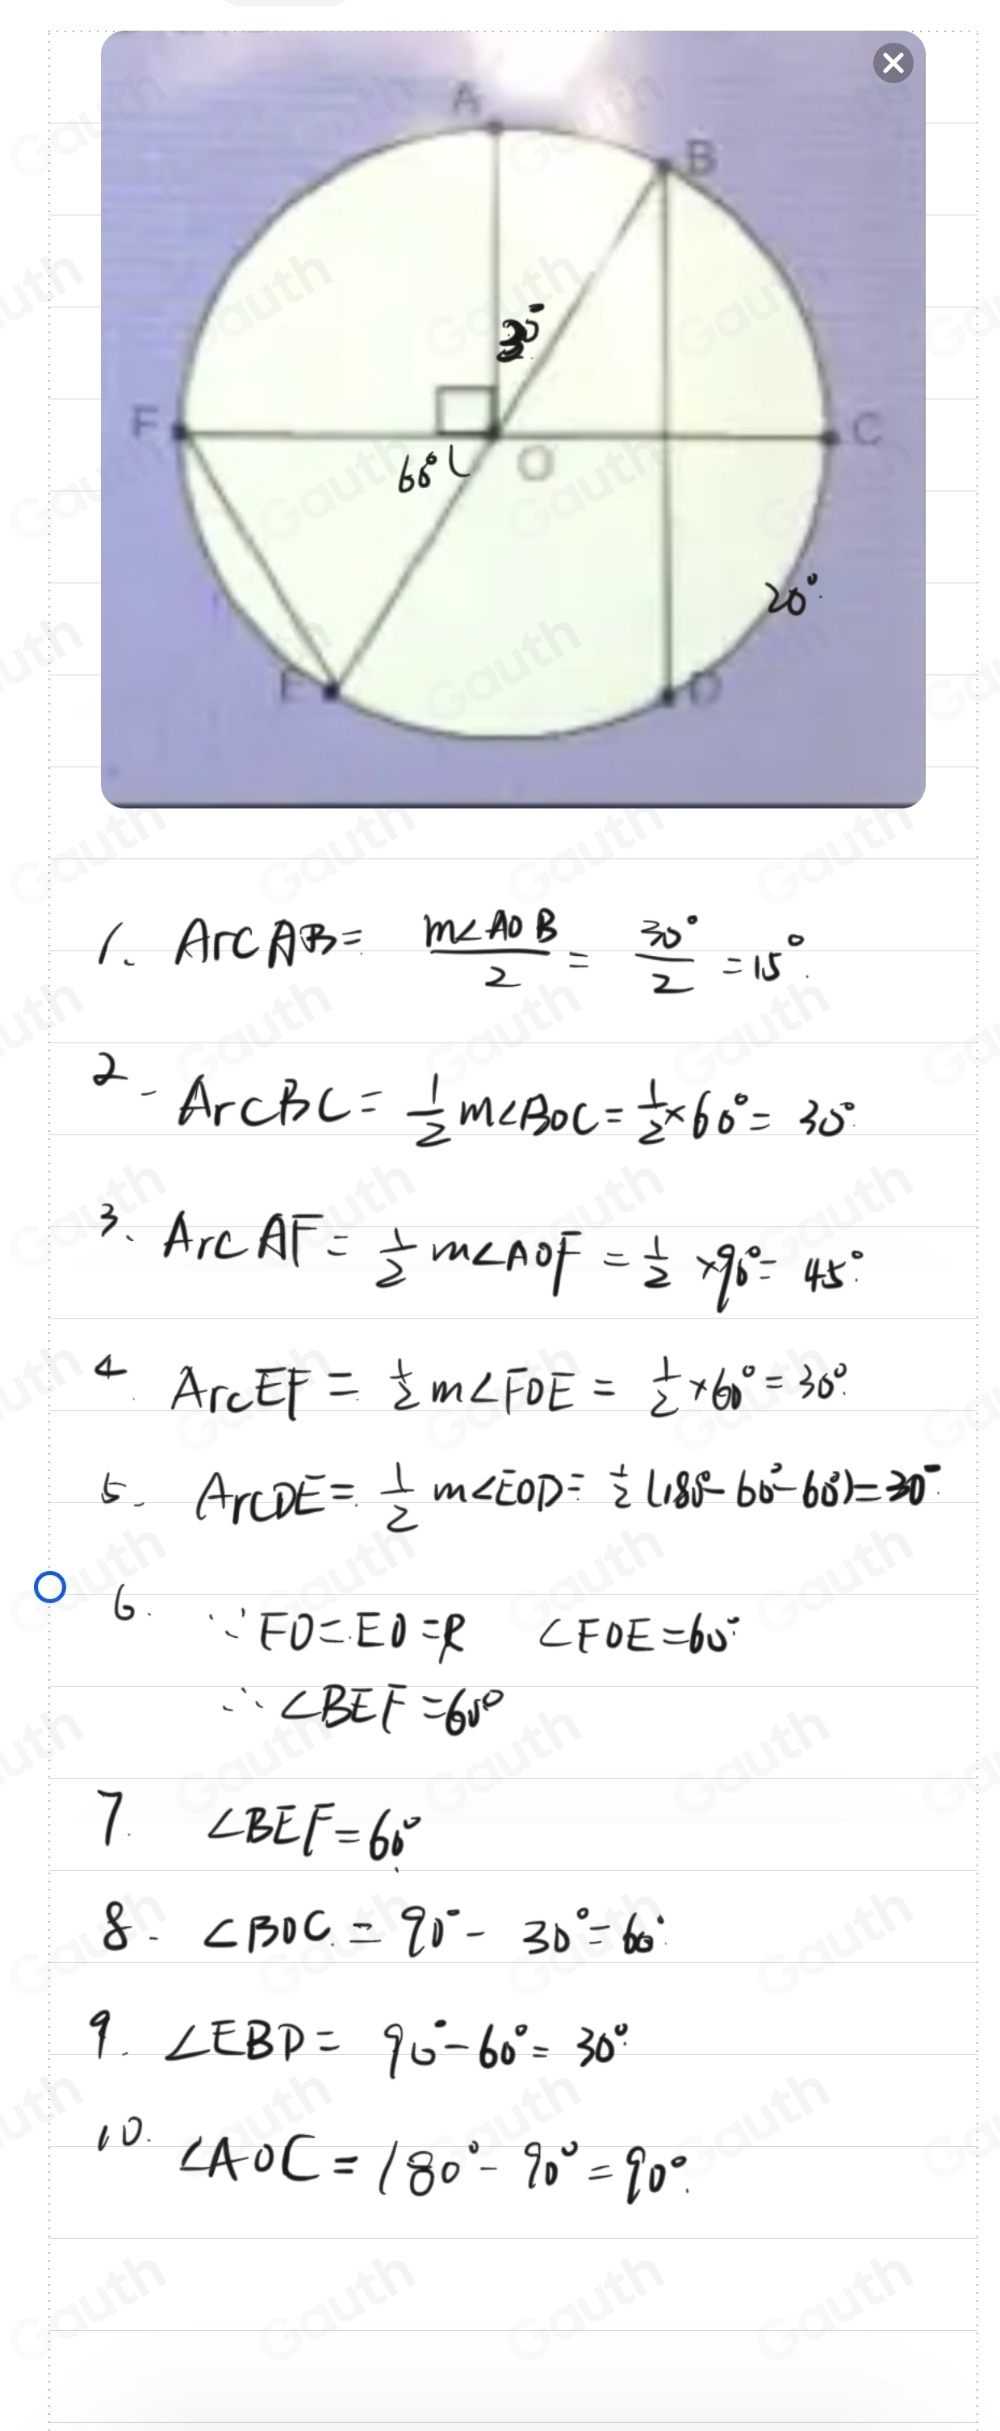 A
B
30°
F
C
60°
O
20°
E
D
1. Arc AB = m∠AOB / 2 = 30° / 2 = 15°.
2. Arc BC = 1/2 m∠BOC = 1/2 × 60° = 30°
3. Arc AF = 1/2 m∠AOF = 1/2 × 90° = 45°.
4. Arc EF = 1/2 m∠FOE = 1/2 × 60° = 30°.
5. Arc DE = 1/2 m∠EOD = 1/2 (180° - 60° - 60°) = 30°
6. ∵ FO = EO = R ∠FOE = 60°
∴ ∠BEF = 60°
7. ∠BEF = 60°
8. ∠BOC = 90° - 30° = 60°
9. ∠EBD = 90° - 60° = 30°
10. ∠AOC = 180° - 90° = 90°.